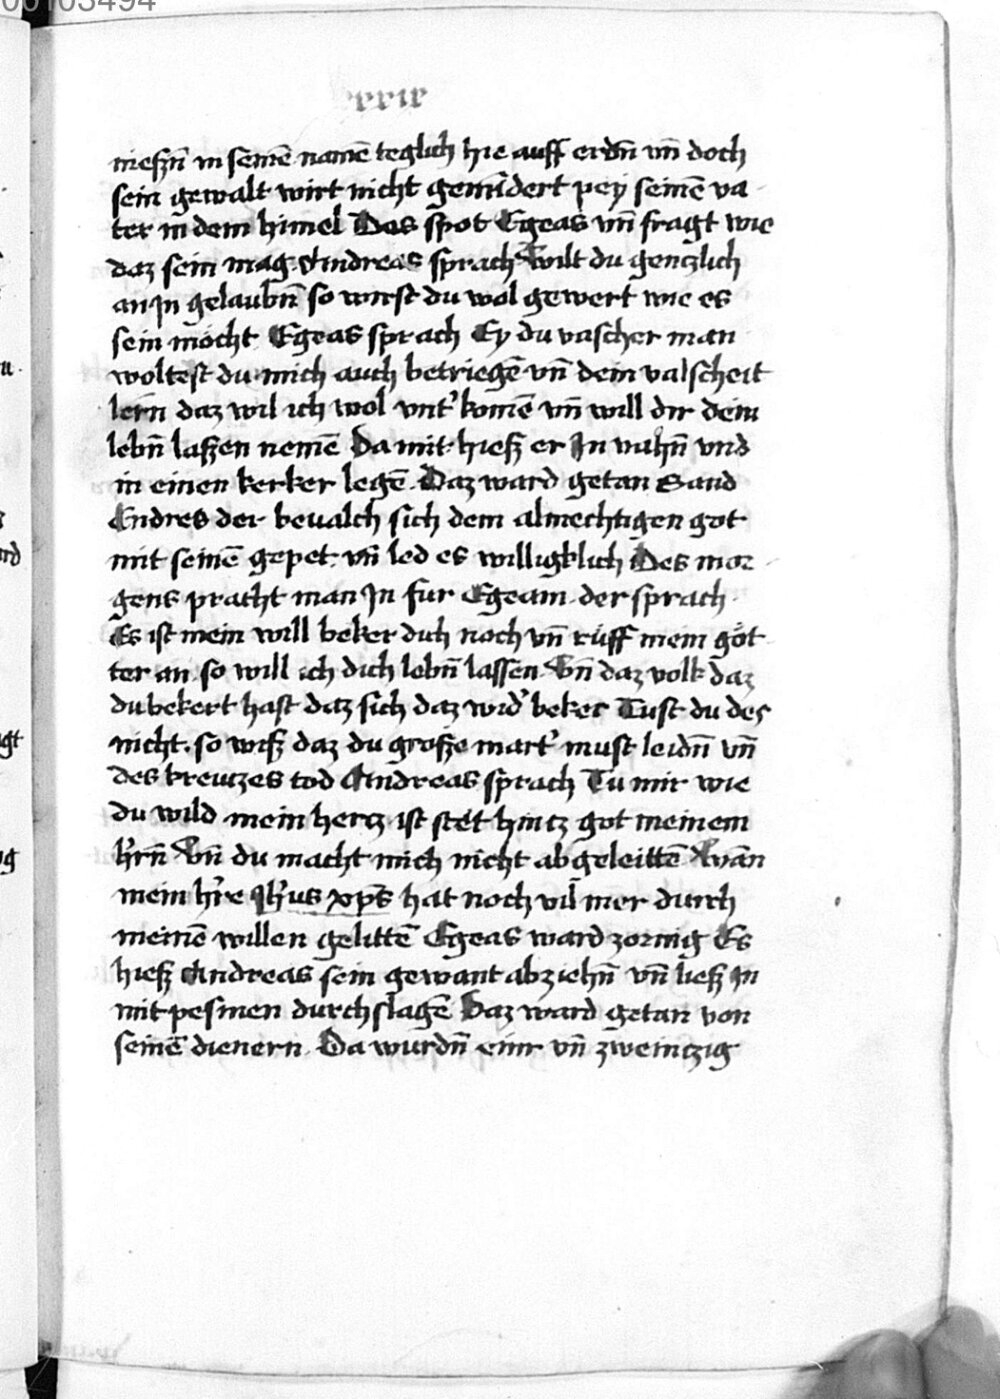 00103494
xxix
nieſzn̄ in ſeinē namē teglich hie auff erdn̄ vn̄ doch
ſein gewalt wirt nicht gemīdert pey ſeinē va
ter in dem himel Des ſpot Egeas vn̄ fragt wie
daz ſein mag Andreas ſprach Wilt du genczlich
an In gelaubn̄ ſo wirſt du wol gewert wie es
ſein möcht Egeas ſprach Ey du vaſcher man
wolteſt du mich auch betriegē vn̄ dein valſcheit
lern daz wil ich wol vnt' komē vn̄ will dir dein
lebn̄ laſzen nemē Da mit hieſz er In vahn̄ vnd
in einen kerker legē Daz ward getan Sand
Andres der beualch ſich dem almechtigen got
mit ſeinē gepet vn̄ led es willigklich Des mor
gens pracht man In fur Egeam der ſprach
Es iſt mein will beker dich noch vn̄ rüff mein göt
ter an ſo will ich dich lebn̄ laſſen Vn̄ daz volk daz
du bekert haſt daz ſich daz wid' beker Tuſt du des
nicht ſo wiſz daz du groſze mart' muſt leidn̄ vn̄
des kreutzes tod Andreas ſprach Tu mir wie
du wild mein hercz iſt ſtet hincz got meinem
h'rn̄ Vn̄ du macht mich nicht ab geleittē Wān
mein h're Jh'us xp̄s hat noch vil mer durch
meinē willen gelittē Egeas ward zornig Es
hieſz Andreas ſein gewant abziehn̄ vn̄ lieſz In
mit peſmen durchſlagē Daz ward getan von
ſeinē dienern Da wurdn̄ einr vn̄ zweinczig